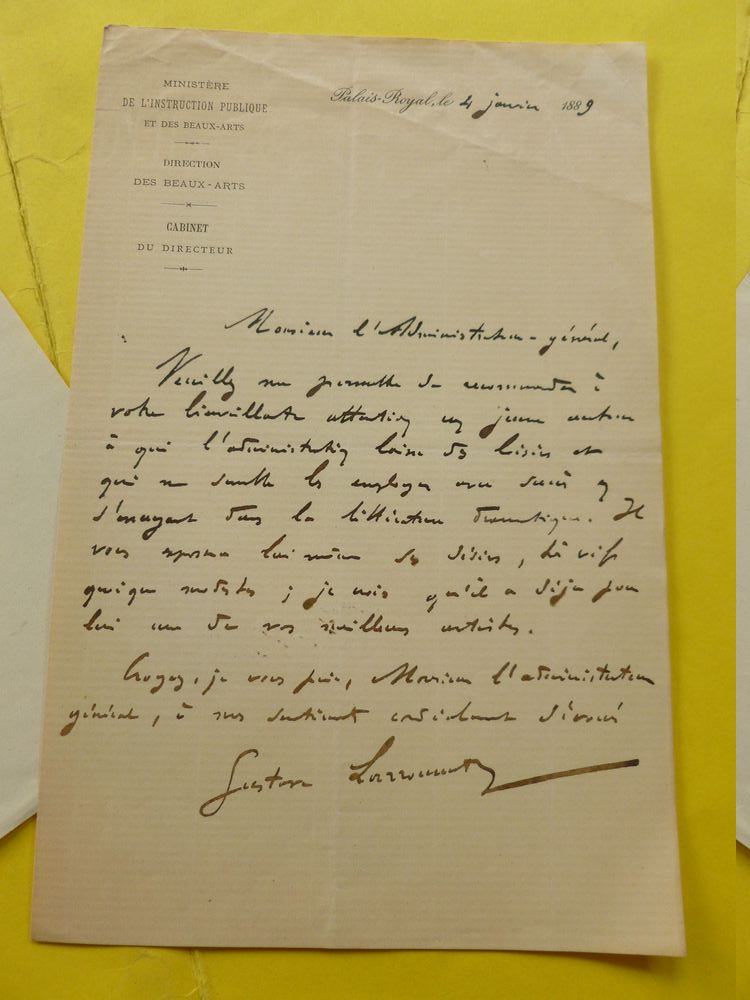 MINISTÈRE
DE L'INSTRUCTION PUBLIQUE
ET DES BEAUX-ARTS
DIRECTION
DES BEAUX-ARTS
CABINET
DU DIRECTEUR
Palais-Royal, le 4 janvier 1889
Monsieur l'Administrateur-général,
Veuillez me permettre de recommander à
votre bienveillante attention un jeune auteur
à qui l'administration laisse des loisirs et
qui me semble les employer avec succès en
s'essayant dans la littérature dramatique. Il
vous exposera lui même ses désirs, très vifs
quoique modestes ; je crois qu'il a déjà pour
lui une de vos meilleures artistes.
Croyez, je vous prie, Monsieur l'administrateur
général, à mes sentiments cordialement dévoués
Gustave Larroumet